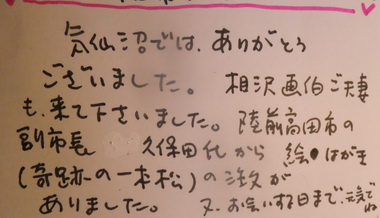 気仙沼では、ありがとう
ございました。 相沢画伯ご夫妻
も、来て下さいました。 陸前高田市の
副市長 久保田氏から 絵はがき
(奇跡の一本松)の注文が
ありました。 又、お会いする日まで、元気でね